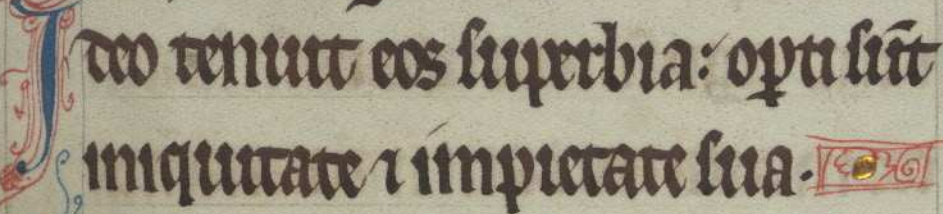 Ideo tenuit eos superbia: oꝑti sūt
iniquitate ⁊ impietate sua.